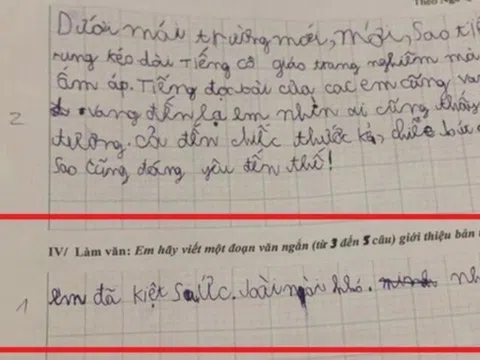 Theo Ng
Dưới mái trường mới, mới, sao tiế
rung kéo dài Tiếng cô giáo trang nghiêm mà
ấm áp. Tiếng đọc bài của các em cũng va
vang đến lạ em nhìn ai cũng thấy
2
thương. Cả đến chiếc thước kẻ, chiếc bút
Sao cũng đáng yêu đến thế!
IV/ Làm văn: Em hãy viết một đoạn văn ngắn (từ 3 đến 5 câu) giới thiệu bản
em đã kiệt sức. bài khó. nh
1